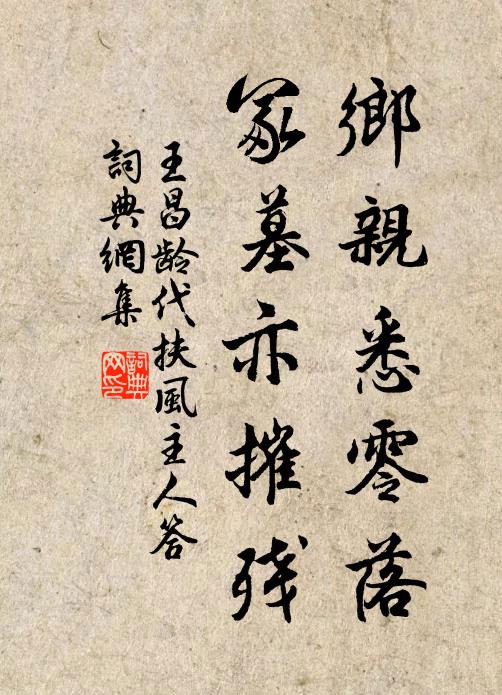 鄉親悉零落
冢墓亦摧残
王昌龄代扶風主人答
詞典網集
詞典网印